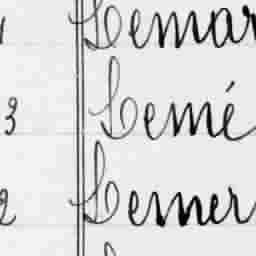 Lemar
3 Lemé
2 Lemer